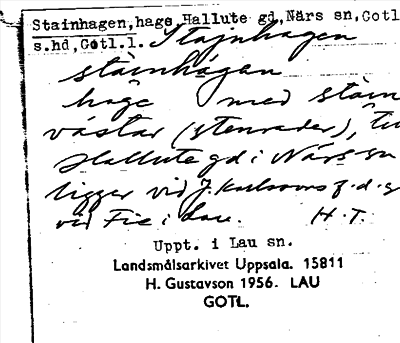 Stainhagen, hage, Hallute gd, Närs sn, Gotl
s.hd, Gotl.l. Stajnhagen
stàinhágen
hage med stäin
västar (stenrader), till
Hallute gd i Närs sn
ligger vid J. Karlssons f.d. g
vid Fie i Lau. H.T.
Uppt. i Lau sn.
Landsmålsarkivet Uppsala. 15811
H. Gustavson 1956. LAU
GOTL.